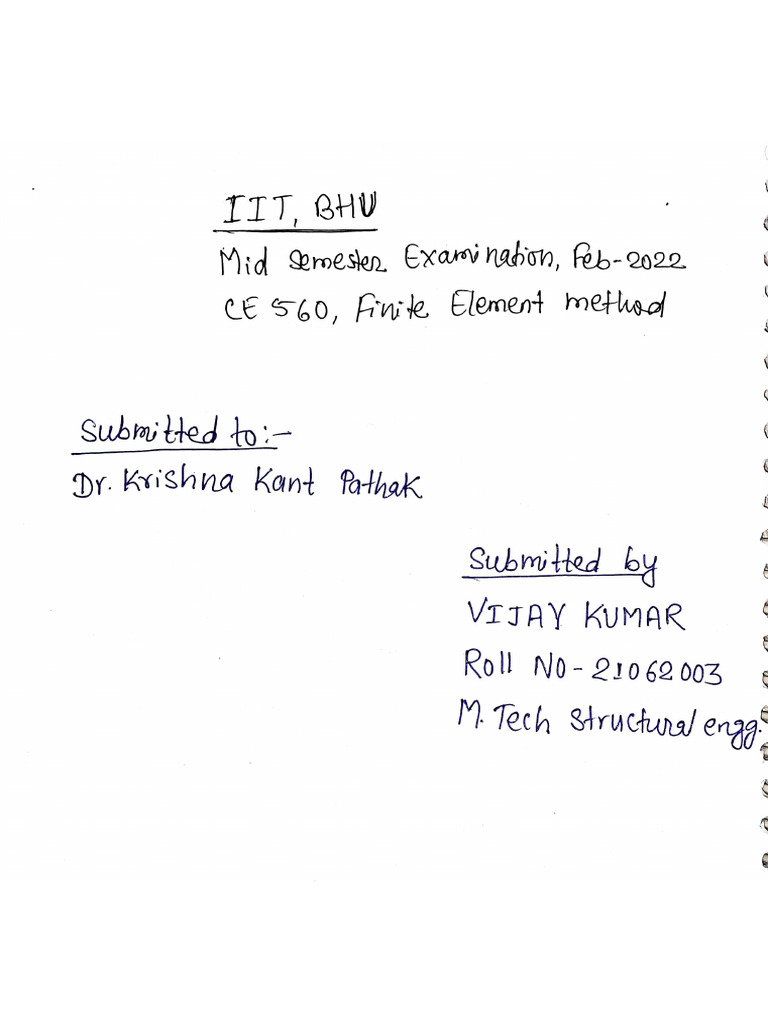 IIT, BHU
Mid semester Examination, Feb-2022
CE 560, Finite Element method
Submitted to:-
Dr. Krishna Kant Pathak
Submitted by
VIJAY KUMAR
Roll NO - 21062003
M. Tech structural engg.